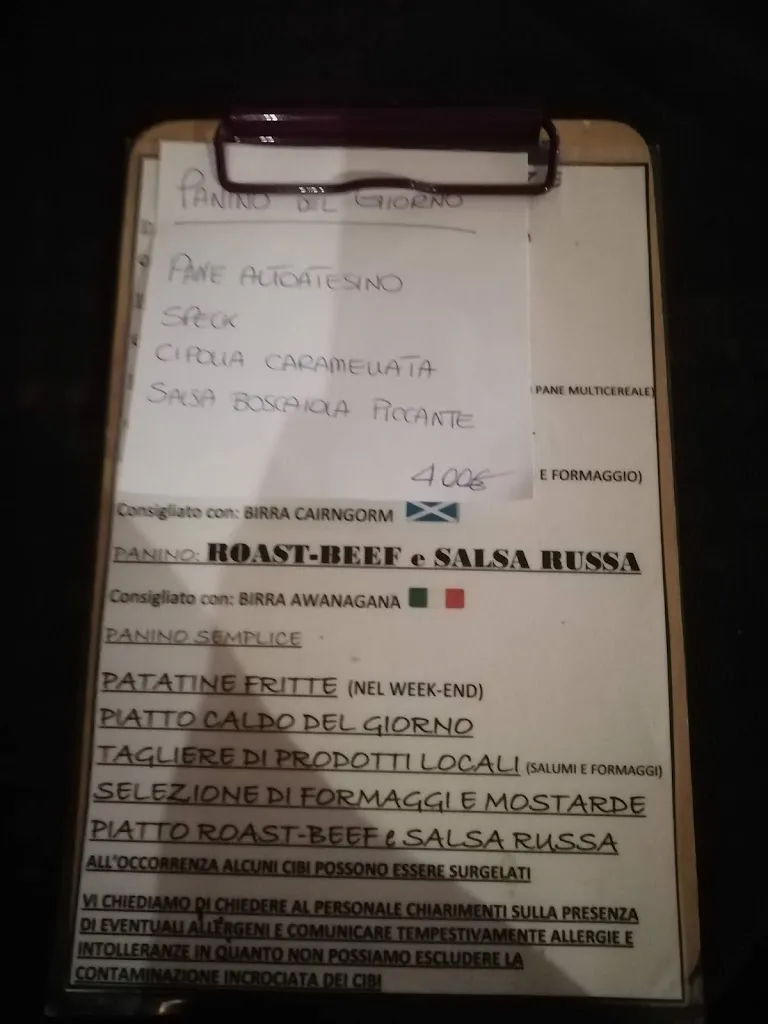 PANINO DEL GIORNO
PANE ALTOATESINO
SPECK
CIPOLLA CARAMELLATA
SALSA BOSCAIOLA PICCANTE
4 00€
PANE MULTICEREALE)
E FORMAGGIO)
Consigliato con: BIRRA CAIRNGORM
PANINO: ROAST-BEEF e SALSA RUSSA
Consigliato con: BIRRA AWANAGANA
PANINO SEMPLICE
PATATINE FRITTE (NEL WEEK-END)
PIATTO CALDO DEL GIORNO
TAGLIERE DI PRODOTTI LOCALI (SALUMI E FORMAGGI)
SELEZIONE DI FORMAGGI E MOSTARDE
PIATTO ROAST-BEEF e SALSA RUSSA
ALL'OCCORRENZA ALCUNI CIBI POSSONO ESSERE SURGELATI
VI CHIEDIAMO DI CHIEDERE AL PERSONALE CHIARIMENTI SULLA PRESENZA
DI EVENTUALI ALLERGENI E COMUNICARE TEMPESTIVAMENTE ALLERGIE E
INTOLLERANZE IN QUANTO NON POSSIAMO ESCLUDERE LA
CONTAMINAZIONE INCROCIATA DEI CIBI